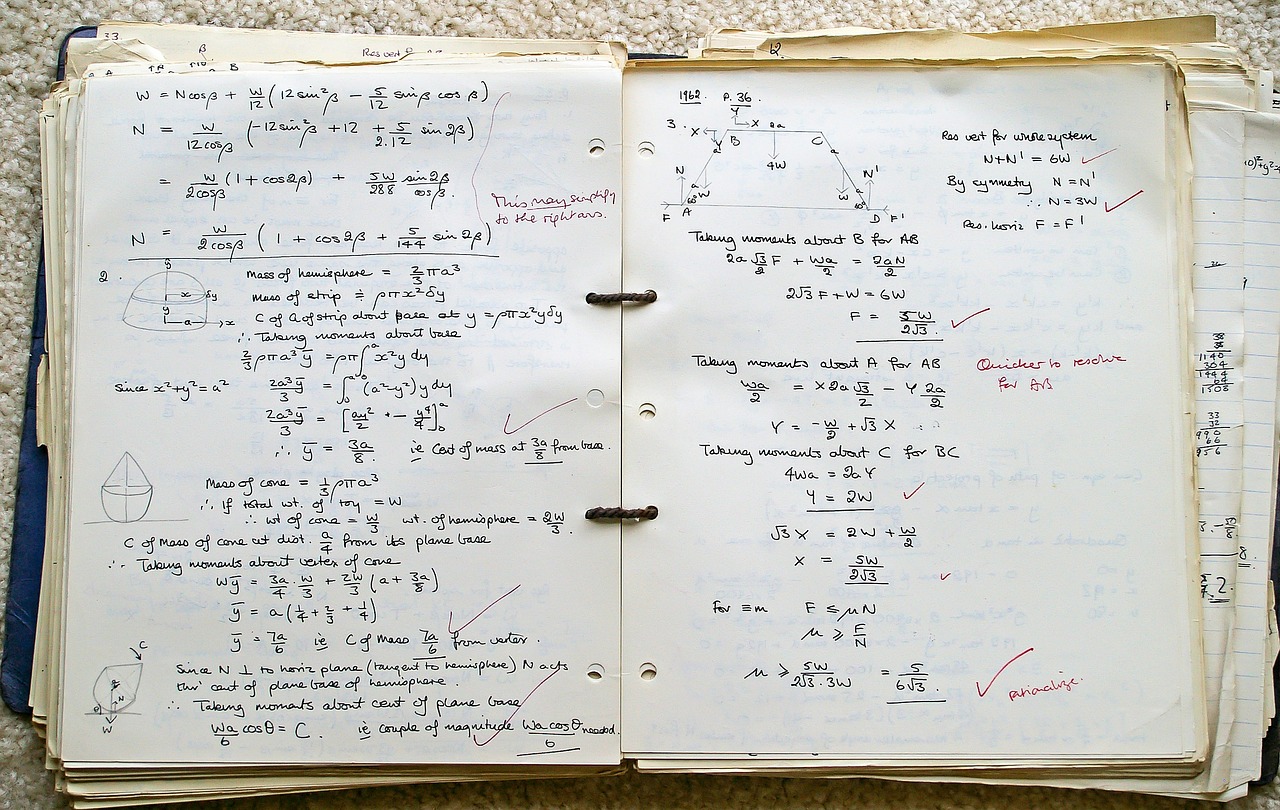 33.
β
Res vert
B
W = Ncosβ + W/12 (12sin²β − 5/12 sinβ cosβ)
N = W/12cosβ (−12sin²β + 12 + 5/2.12 sin2β)
= W/2cosβ (1 + cos2β) + 5W/288 sin2β/cosβ.
This may simplify
to the right ans.
N = W/2cosβ (1 + cos2β + 5/144 sin2β)
2.
y
x δy
y
a x
Mass of hemisphere = 2/3 πa³
Mass of strip ≑ ρπx²δy
C of G of strip about base at y = ρπx²yδy
∴ Taking moments about base
2/3 ρπa³ȳ = ρπ∫₀ᵃ x²y dy
Since x²+y²=a² 2a³ȳ/3 = ∫₀ᵃ (a²−y²)y dy
2a³ȳ/3 = [ay²/2 − y⁴/4]₀ᵃ
∴ ȳ = 3a/8 ie Cent of mass at 3a/8 from base.
Mass of cone = 1/3 ρπa³
∴ If total wt. of toy = W
∴ wt of cone = W/3 wt. of hemisphere = 2W/3.
C of Mass of cone at dist. a/4 from its plane base
∴ Taking moments about vertex of cone
Wȳ = 3a/4 · W/3 + 2W/3 (a + 3a/8)
ȳ = a(1/4 + 2/3 + 1/4)
ȳ = 7a/6 ie C of Mass 7a/6 from vertex.
C
N
θ
W
Since N ⊥ to horiz plane (tangent to hemisphere) N acts
thro' cent of plane base of hemisphere.
∴ Taking moments about cent of plane base
Wa/6 cosθ = C. ie couple of magnitude Wa cosθ/6 needed.
12.
1962. P. 36.
3.
Y
X X 2a
B C
Y a a
4W
N a a N'
W W
60° 60°
F A D F'
Res vert for whole system
N+N' = 6W
By symmetry N = N'
∴ N = 3W
Res. horiz F = F'
Taking moments about B for AB
2a √3/2 F + Wa/2 = 2aN/2
2√3 F + W = 6W
F = 5W/2√3.
Taking moments about A for AB
Quicker to resolve
for AB
Wa/2 = X 2a √3/2 − Y 2a/2
Y = −W/2 + √3 X
Taking moments about C for BC
4Wa = 2aY
Y = 2W
√3 X = 2W + W/2
X = 5W/2√3
For ≡m F ≤ μN
μ ≥ F/N
μ ≥ 5W/2√3.3W = 5/6√3.
rationalize.
38
38
1140
304
1444
64
1508
33
32
990
66
956